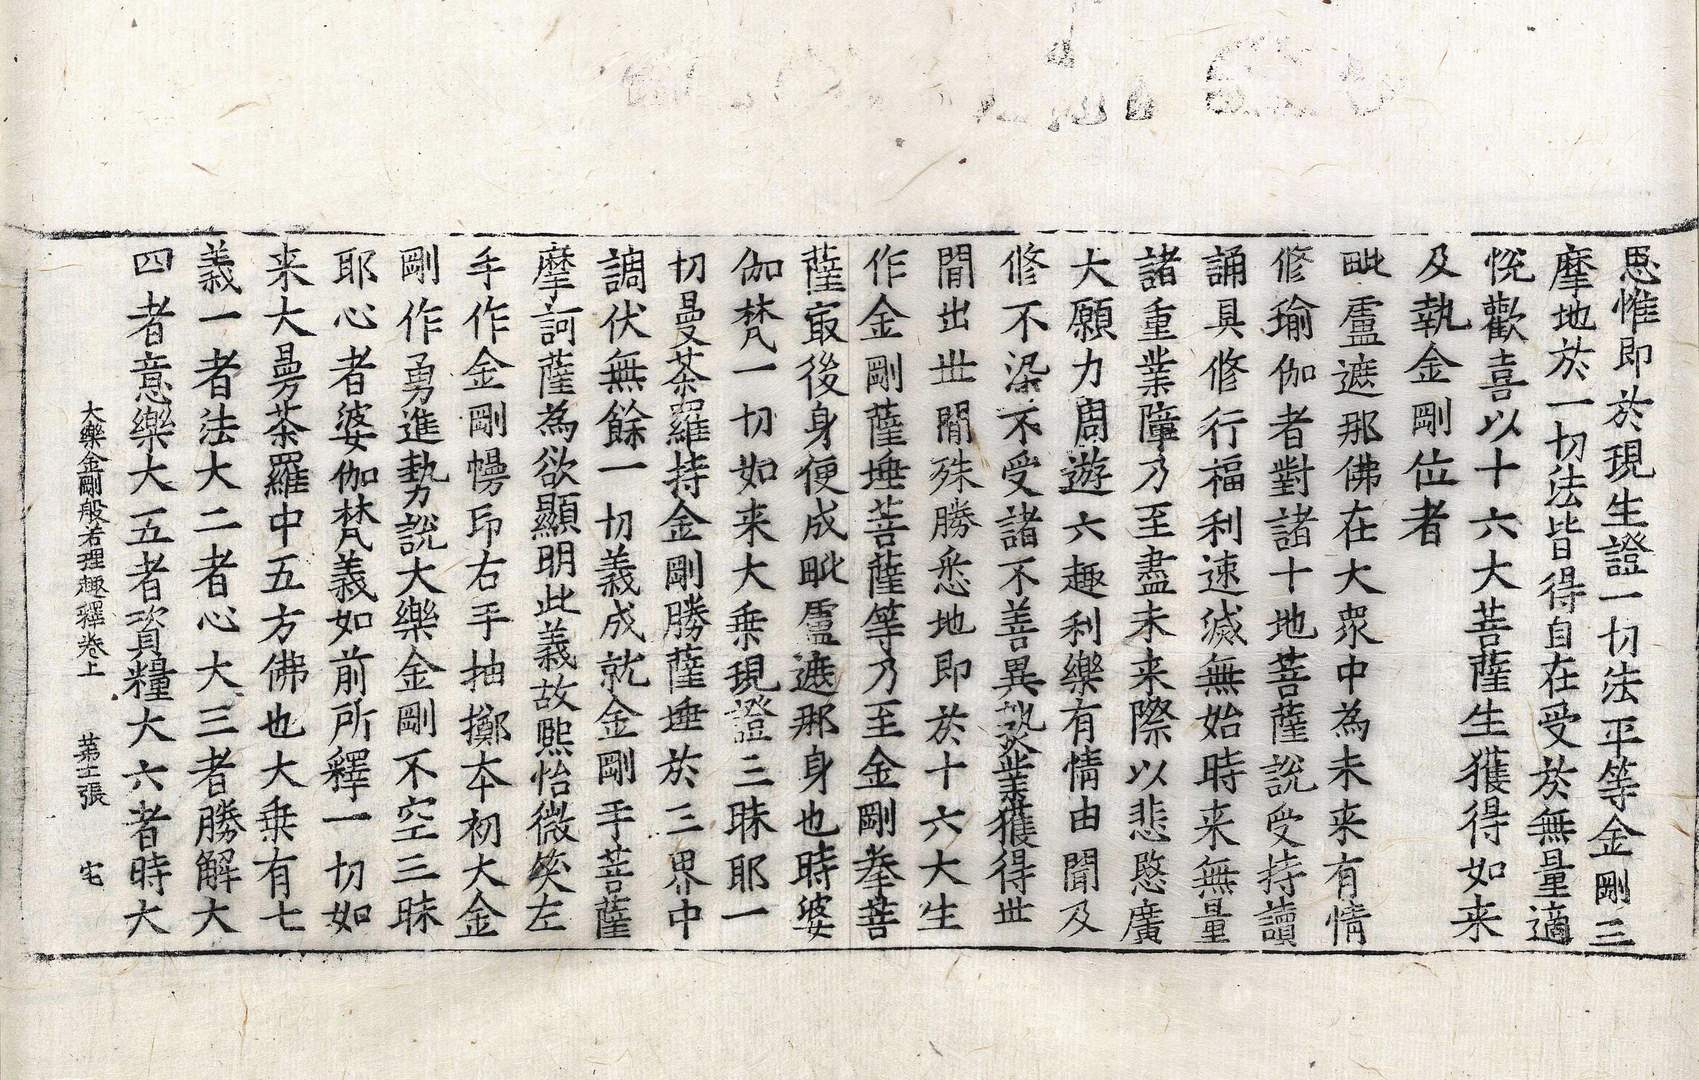 思惟即於現生證一切法平等金剛三
摩地於一切法皆得自在受於無量適
悅歡喜以十六大菩薩生獲得如来
及執金剛位者
毗盧遮那佛在大衆中為未来有情
修瑜伽者對諸十地菩薩說受持讀
誦具修行福利速滅無始時来無量
諸重業障乃至盡未来際以悲愍廣
大願力周遊六趣利樂有情由聞及
修不染不受諸不善異熟業獲得世
間出世間殊勝悉地即於十六大生
作金剛薩埵菩薩等乃至金剛拳菩
薩㝡後身便成毗盧遮那身也時婆
伽梵一切如来大乗現證三昧耶一
切曼茶羅持金剛勝薩埵於三界中
調伏無餘一切義成就金剛手菩薩
摩訶薩為欲顯明此義故熈怡微笑左
手作金剛慢印右手抽擲本初大金
剛作勇進勢說大樂金剛不空三昧
耶心者婆伽梵義如前所釋一切如
来大曼茶羅中五方佛也大乗有七
義一者法大二者心大三者勝解大
四者意樂大五者資糧大六者時大
大樂金剛般若理趣釋卷上 苐十一張 宅